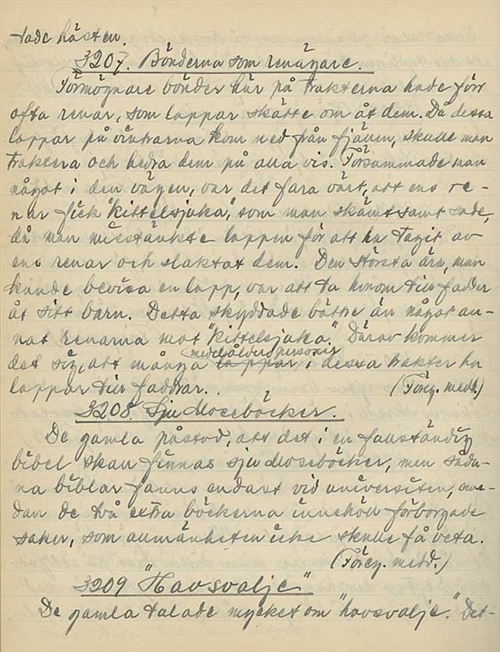 tade hästen.
§207. Bönderna som renägare.
Förmögnare bönder här på trakterna hade förr
ofta renar, som lappar skötte om åt dem. Då dessa
lappar på vintrarna kom ned från fjällen, skulle man
traktera och hedra dem på alla vis. Försummade man
något i den vägen, var det fara värt, att ens re-
nar fick "kittelsjuka", som man skämtsamt sade,
då man misstänkte lappen för att ha tagit av
ens renar och slaktat dem. Den största ära, man
kunde bevisa en lapp, var att ta honom till fadder
åt sitt barn. Detta skyddade bättre än något an-
nat renarna mot "kittelsjuka." Därav kommer
det sig, att många medelålders personer i dessa trakter ha
lappar till faddrar. (Föreg. medd.)
§208 Sju Moseböcker.
De gamla påstod, att det i en fullständig
bibel skall finnas sju moseböcker, men såda-
na biblar fanns endast vid universiteten, me-
dan de två extra böckerna innehöll förborgade
saker, som allmänheten icke skulle få veta.
(Föreg. medd.)
§209 "Havsvalje"
De gamla talade mycket om "havsvalje." Det-